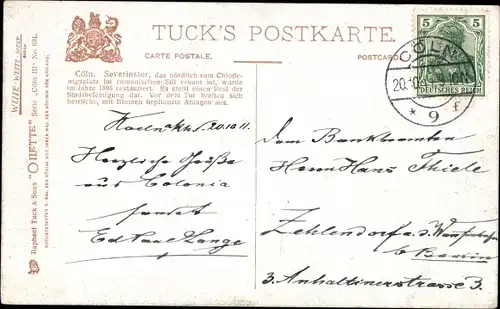 TUCK'S POSTKARTE.
CARTE POSTALE. POSTCARD
Cöln. Severinstor, das nördlich vom Chlodwigplatz
im romanischen Stil erbaut ist, wurde
im Jahre 1895 restauriert. Es stellt einen Rest der
Stadtbefestigung dar. Vor dem Tor breiten sich
herrliche, mit Blumen bepflanzte Anlagen aus.
WEITE-WEITE-WELT
Raphael Tuck & Sons' "OILETTE" Serie „Cöln III." No. 691.
5 5
DEUTSCHES REICH
CÖLN
20.10 9-10N
* 9 f
20.10.11.
Herzliche Grüße
aus Colonia
sendet
Ed Karl Lange
Dem Bankbeamten
Herrn Hans Thiele
Zehlendorf a.d. Wannseebahn
b. Berlin
3. Anhaltinerstrasse 3.